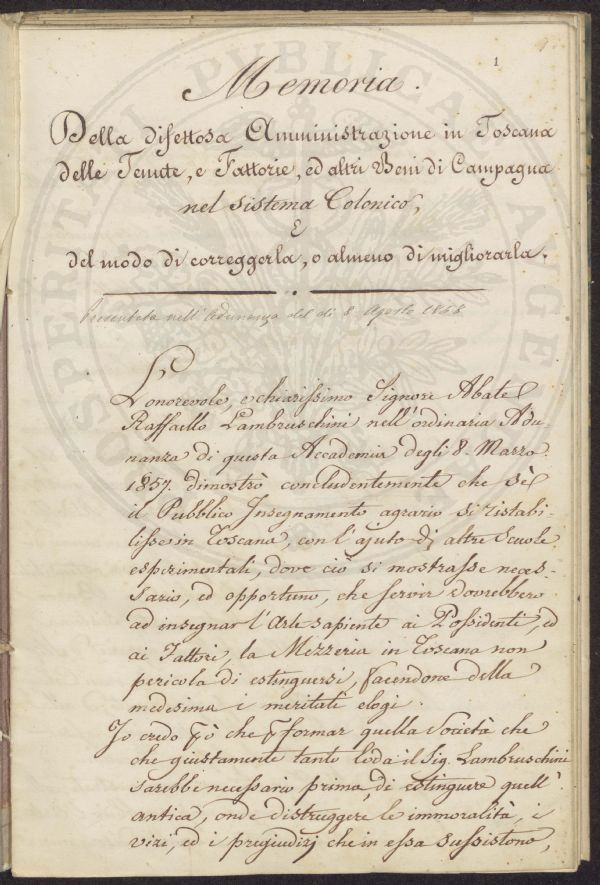 1
Memoria.
Della difettosa Amministrazione in Toscana
delle Tenute, e Fattorie, ed altri Beni di Campagna
nel sistema Colonico,
E
del modo di correggerla, o almeno di migliorarla.
Presentata nell'Adunanza del dì 8 Agosto 1858
L'onorevole, e chiarissimo Signore Abate
Raffaello Lambruschini nell'ordinaria Adu-
nanza di questa Accademia degli 8. Marzo
1857. dimostrò concludentemente che sè
il Pubblico Insegnamento agrario si ristabi-
lisse in Toscana, con l'ajuto di altre Scuole
esperimentali, dove ciò si mostrasse neces-
sario, ed opportuno, che servir dovrebbero
ad insegnar l'Arte sapiente ai Possidenti, ed
ai Fattori, la Mezzeria in Toscana non
pericola di estinguersi, facendone della
medesima i meritati elogi.
Io credo pò che p formar quella Società che
che giustamente tanto loda il Sig. Lambruschini
sarebbe necessario prima di estinguere quell'
antica, onde distruggere le immoralità, i
vizi, ed i pregiudizj che in essa sussistono,
PUBLICAE
PROSPERITATI
AUGE